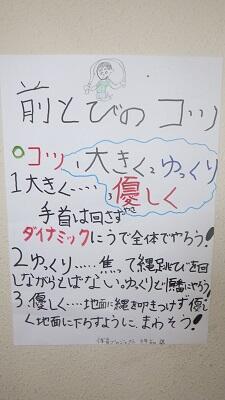 前とびのコツ
○コツ、大きく、ゆっくり
優しく
1 大きく‥‥
手首は回さず
ダイナミックにうで全体でやろう!
2 ゆっくり‥‥焦って縄跳びを回
しながらとばない。ゆっくりで順番にやろう!
3、優しく‥‥地面に縄を叩きつけず優し
く地面に下ろすように、まわそう!